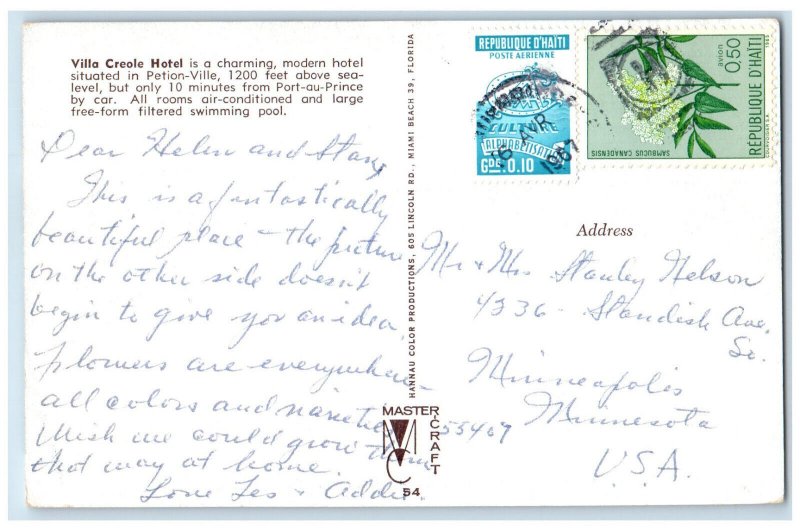 Villa Creole Hotel is a charming, modern hotel
situated in Petion-Ville, 1200 feet above sea-
level, but only 10 minutes from Port-au-Prince
by car. All rooms air-conditioned and large
free-form filtered swimming pool.
Dear Helen and Stan,
This is a fantastically
beautiful place – the picture
on the other side doesn't
begin to give you an idea.
Flowers are everywhere –
all colors and varieties
Wish we could grow them
that way at home.
Love Les + Addie
HANNAU COLOR PRODUCTIONS, 605 LINCOLN RD., MIAMI BEACH 39, FLORIDA
MASTER
CRAFT
MC
54
REPUBLIQUE D'HAITI
POSTE AERIENNE
CULTURE
ALPHABETISATION
GDE. 0.10
AVR
1967
avion
0,50
REPUBLIQUE D'HAITI
SAMBUCUS CANADENSIS
1965
Address
Mr + Mrs Stanley Nelson
4336 - Standish Ave.
So.
Minneapolis
Minnesota
55407
U.S.A.